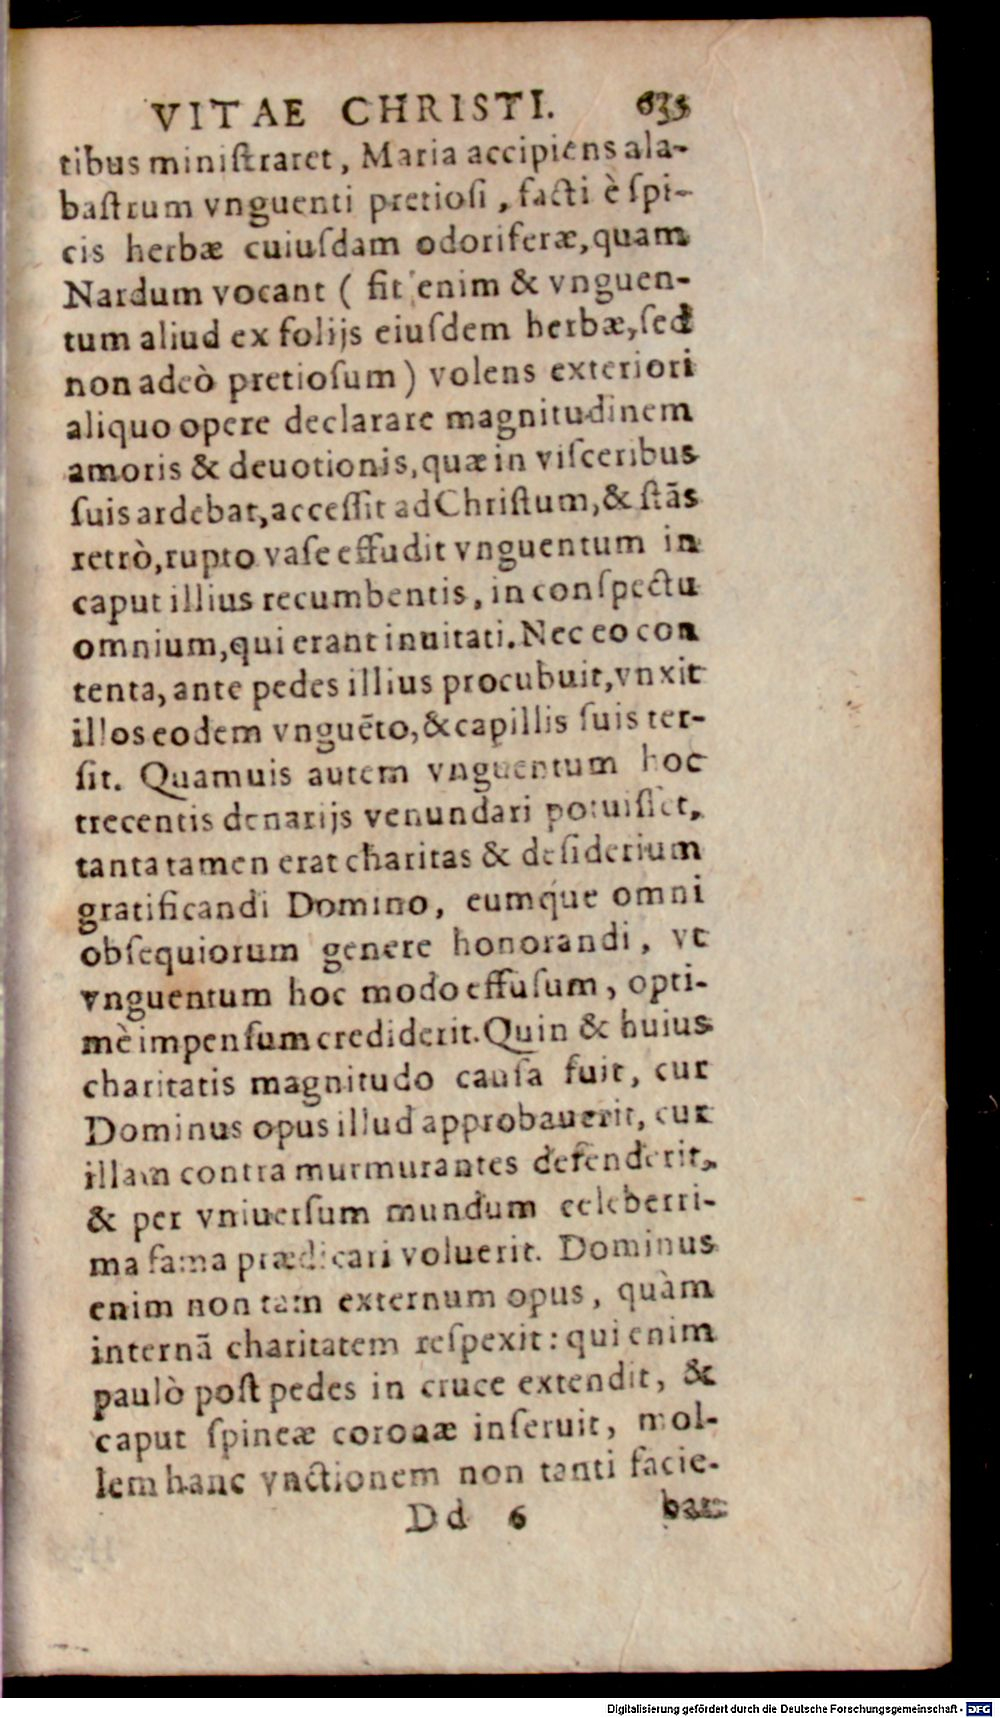 VITAE CHRISTI. 635
tibus miniſtraret, Maria accipiens ala-
baſtrum vnguenti pretioſi, facti è ſpi-
cis herbæ cuiuſdam odoriferæ, quam
Nardum vocant ( fit enim & vnguen-
tum aliud ex folijs eiuſdem herbæ, ſed
non adeò pretioſum ) volens exteriori
aliquo opere declarare magnitudinem
amoris & deuotionis, quæ in viſceribus
ſuis ardebat, acceſſit ad Chriſtum, & ſtãs
retrò, rupto vaſe effudit vnguentum in
caput illius recumbentis, in conſpectu
omnium, qui erant inuitati. Nec eo con
tenta, ante pedes illius procubuit, vnxit
illos eodem vnguẽto, & capillis ſuis ter-
ſit. Quamuis autem vnguentum hoc
trecentis denarijs venundari potuiſſet,
tanta tamen erat charitas & deſiderium
gratificandi Domino, eumq́ue omni
obſequiorum genere honorandi, vt
vnguentum hoc modo effuſum, opti-
mè impenſum crediderit. Quin & huius
charitatis magnitudo cauſa fuit, cur
Dominus opus illud approbauerit, cur
illam contra murmurantes defenderit,
& per vniuerſum mundum celeberri-
ma fama prædicari voluerit. Dominus
enim non tam externum opus, quàm
internã charitatem reſpexit: qui enim
paulò poſt pedes in cruce extendit, &
caput ſpineæ coronæ inſeruit, mol-
lem hanc vnctionem non tanti facie-
Dd 6 bat
Digitalisierung gefördert durch die Deutsche Forschungsgemeinschaft - DFG